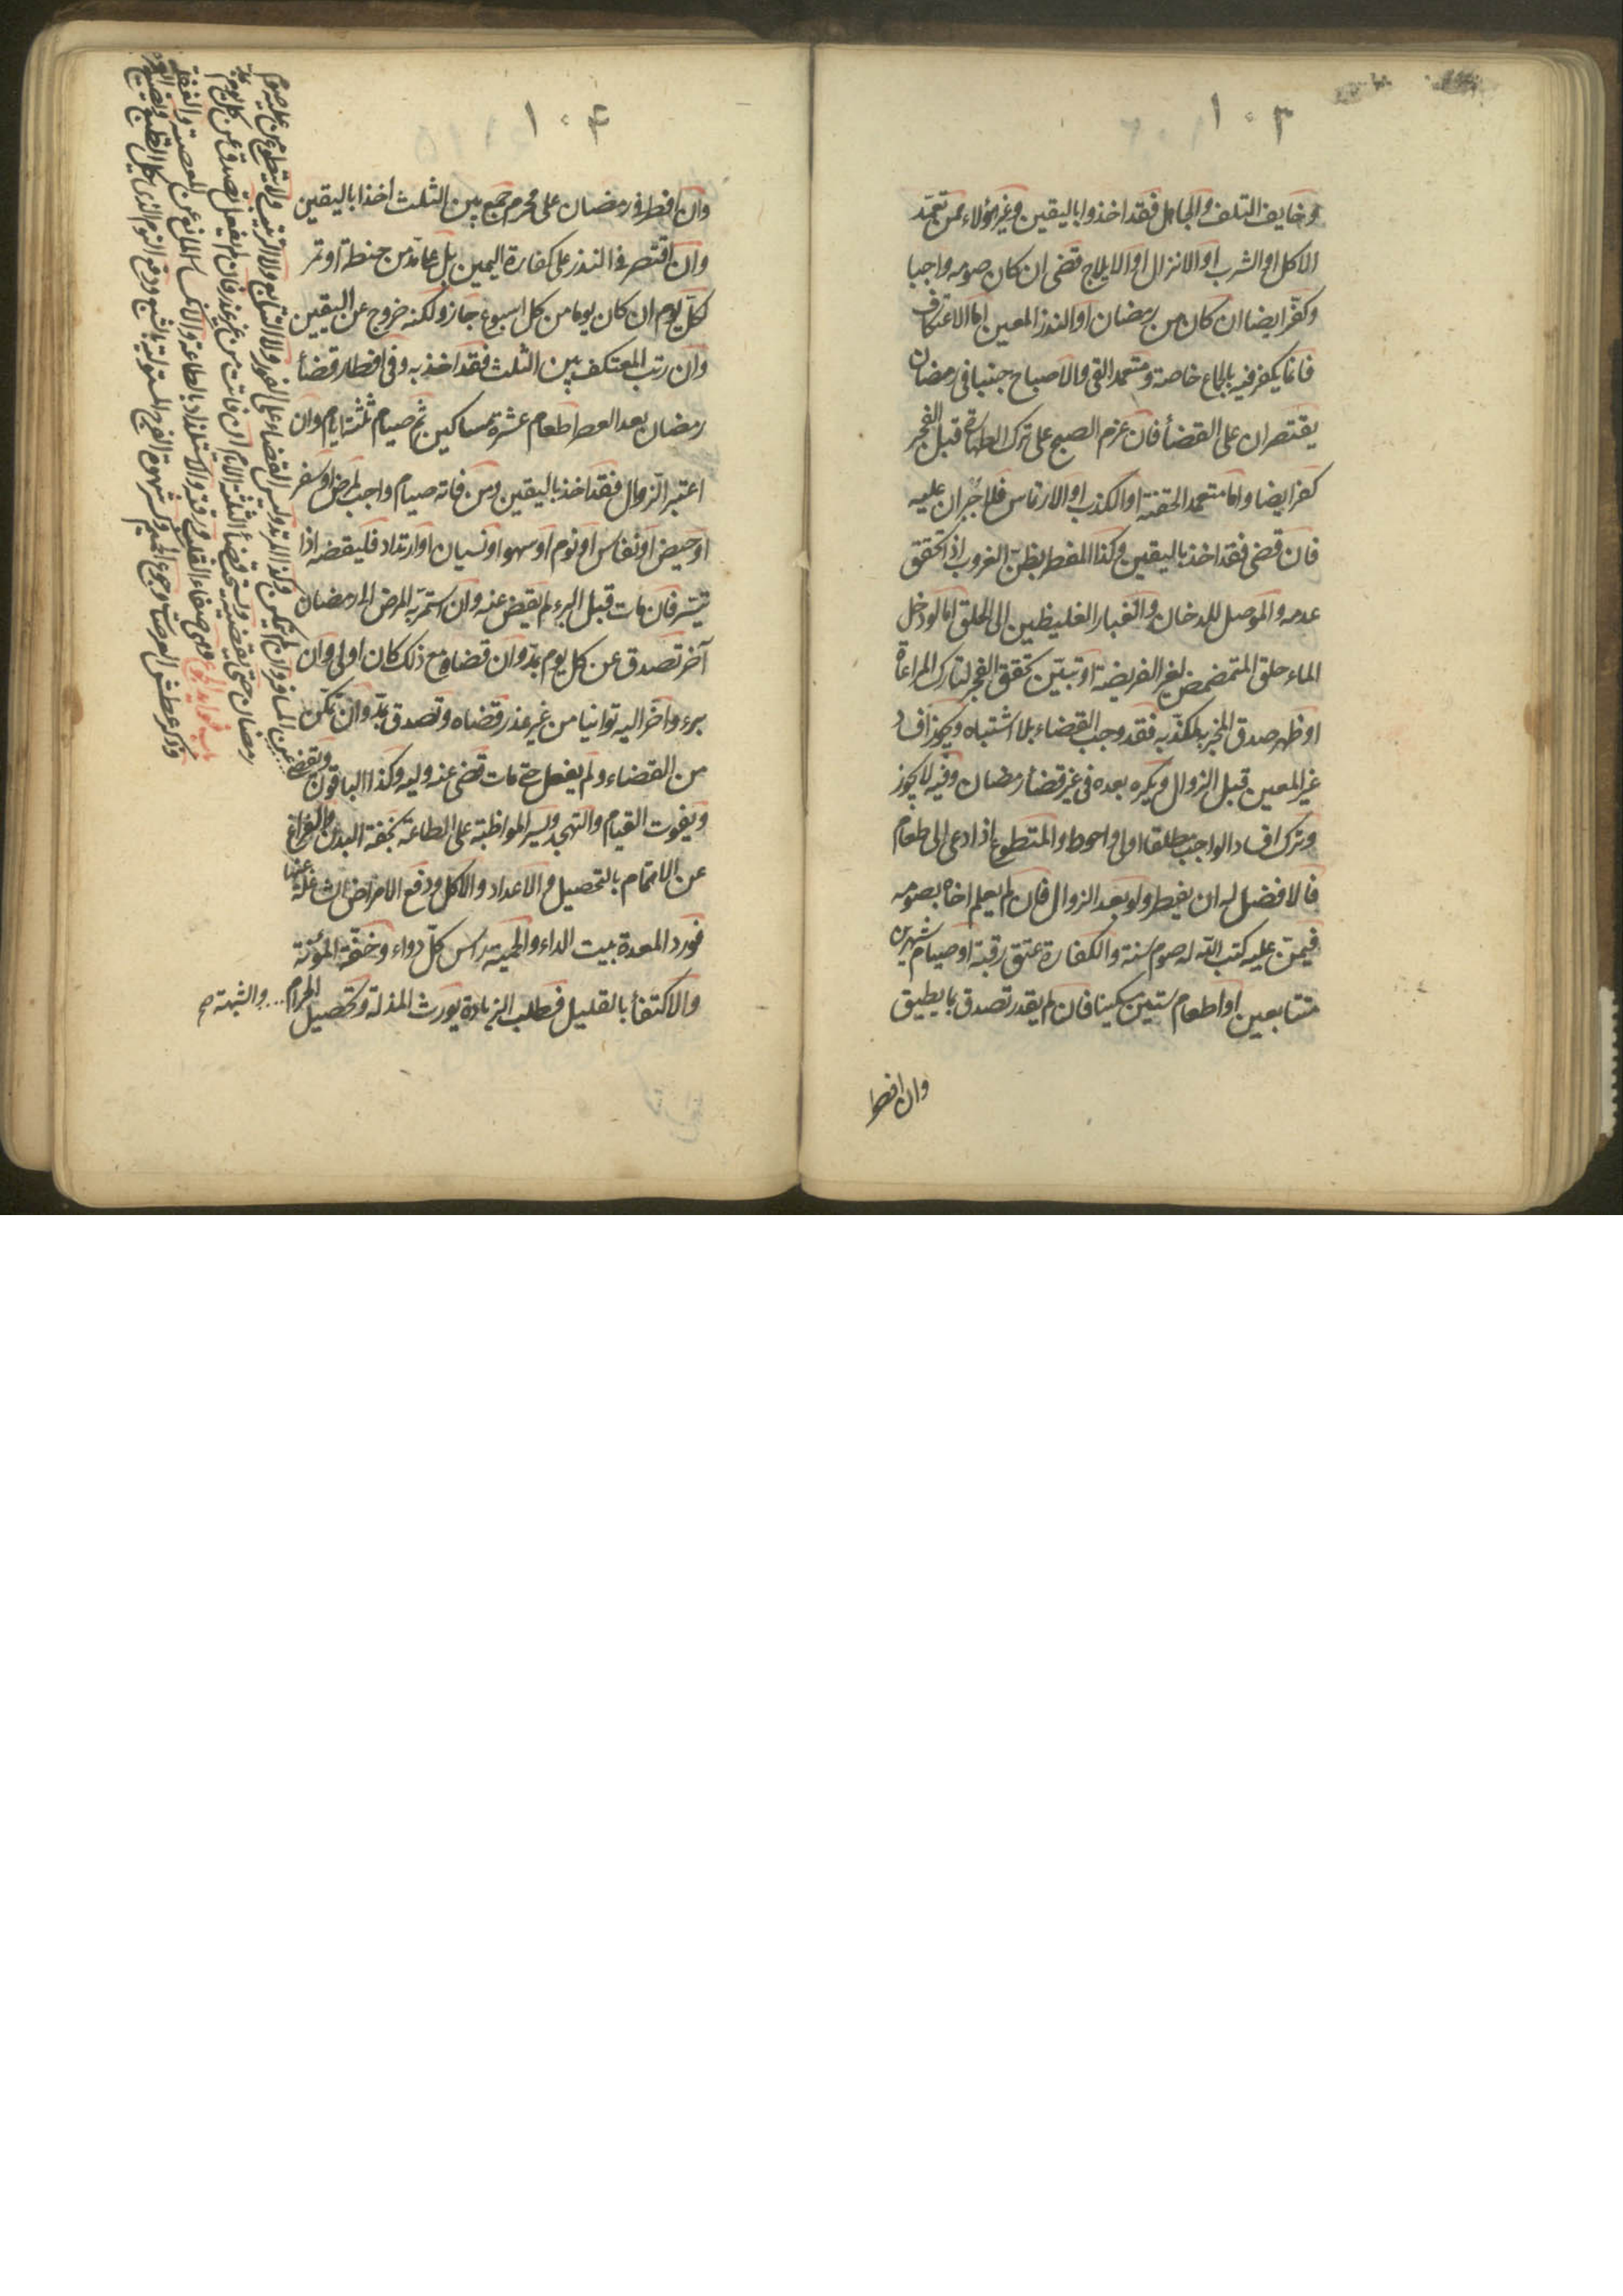 ١٠٣
وخايف التلف والجاهل فقد اخذوا باليقين وغير هؤلاء ممن تعمّد
الاكل او الشرب او الانزال او الايلاج قضى ان كان صومه واجبا
وكفّر ايضا ان كان من رمضان او النذر المعين اما الاعتكاف
فانما يكفر فيه بالجماع خاصة ومتعمد القئ والاصباح جنبا في رمضان
يقتصران على القضأ فان عزم الصبح على ترك الطهارة قبل الفجر
كفر ايضا واما متعمد الحقنة او الكذب او الارتماس فلا جبران عليه
فان قضى فقد اخذ باليقين وكذا المفطر بظنّ الغروب اذا تحقق
عدمه والموصل للدخان والغبار الغليظين الى الحلق اما لو دخل
الماء حلق المتمضمض لغير الفريضة او تبيّن تحقق الفجر لتارك المراعاة
او ظهر صدق المخبر لمكذّبه فقد وجب القضاء بلا اشتباه ويجوز افساد
غير المعين قبل الزوال ويكره بعده في غير قضأ رمضان وفيه لا يجوز
وترك افساد الواجب مطلقا اولى واحوط والمتطوع اذا دعى الى طعام
فالافضل له ان يفطر ولو بعد الزوال فان لم يعلم اخاه بصومه
فيمنّ عليه كتب الله له صوم سنة والكفارة عتق رقبة او صيام شهرين
متتابعين او اطعام ستين مسكينا فان لم يقدر تصدق بما يطيق
وان افطر
١٠٤
وان افطر في رمضان على محرم جمع بين الثلث اخذا باليقين
وان اقتصر في النذر على كفارة اليمين بل على مدّ من حنطة او تمر
لكلّ يوم ان كان يوما من كل اسبوع جاز ولكنه خروج عن اليقين
وان رتب المعتكف بين الثلث فقد اخذ به وفي افطار قضأ
رمضان بعد العصر اطعام عشرة مساكين ثم صيام ثلثة ايام وان
اعتبر الزوال فقد اخذ باليقين ومن فاته صيام واجب لمرض او سفر
او حيض او نفاس او نوم او سهو او نسيان او ارتداد فليقضه اذا
تيسّر فان مات قبل البرء لم يقض عنه وان استمرّ به المرض الى رمضان
آخر تصدق عن كل يوم بمدّ وان قضاه مع ذلك كان اولى وان
برء واخّر اليه توانيا من غير عذر قضاه وتصدق بمدّ وان تمكّن
من القضاء ولم يفعل حتى مات قضى عنه وليه وكذا الباقون ويقضى
عن المسافر وان لم يتمكن وكذا المرتد وليس القضاء على الفور ولا التتابع ولا الترتيب ولا يتطوع من عليه صوم
رمضان حتى يقضيه ويستحب قضأ الثلثة الايام ان فاتت من غير عذر فان لم يفعل تصدق عن كل يوم بمدّ
باب فوايد الجوع وهي صفاء القلب ورقته والاستلذاذ بالطاعة والانكسار المانع عن المعصية والغفلة
وذكر عطش العرصات وجوع الجحيم وكسر شهوة الفرج المستولية بالشبع ودفع النوم الذى يكلّ الطبع ويضيع العمر
ويفوت القيام والتهجد ويسر المواظبة على الطاعة بخفة البدن والفراغ
عن الاهتمام بالتحصيل والاعداد والاكل ودفع الامراض الشاغلة عنها
فورد المعدة بيت الداء والحمية راس كلّ دواء وخفّة المؤنة
والاكتفأ بالقليل فطلب الزيادة يورث المذلة وتحصيل الحرام والشبهة صح